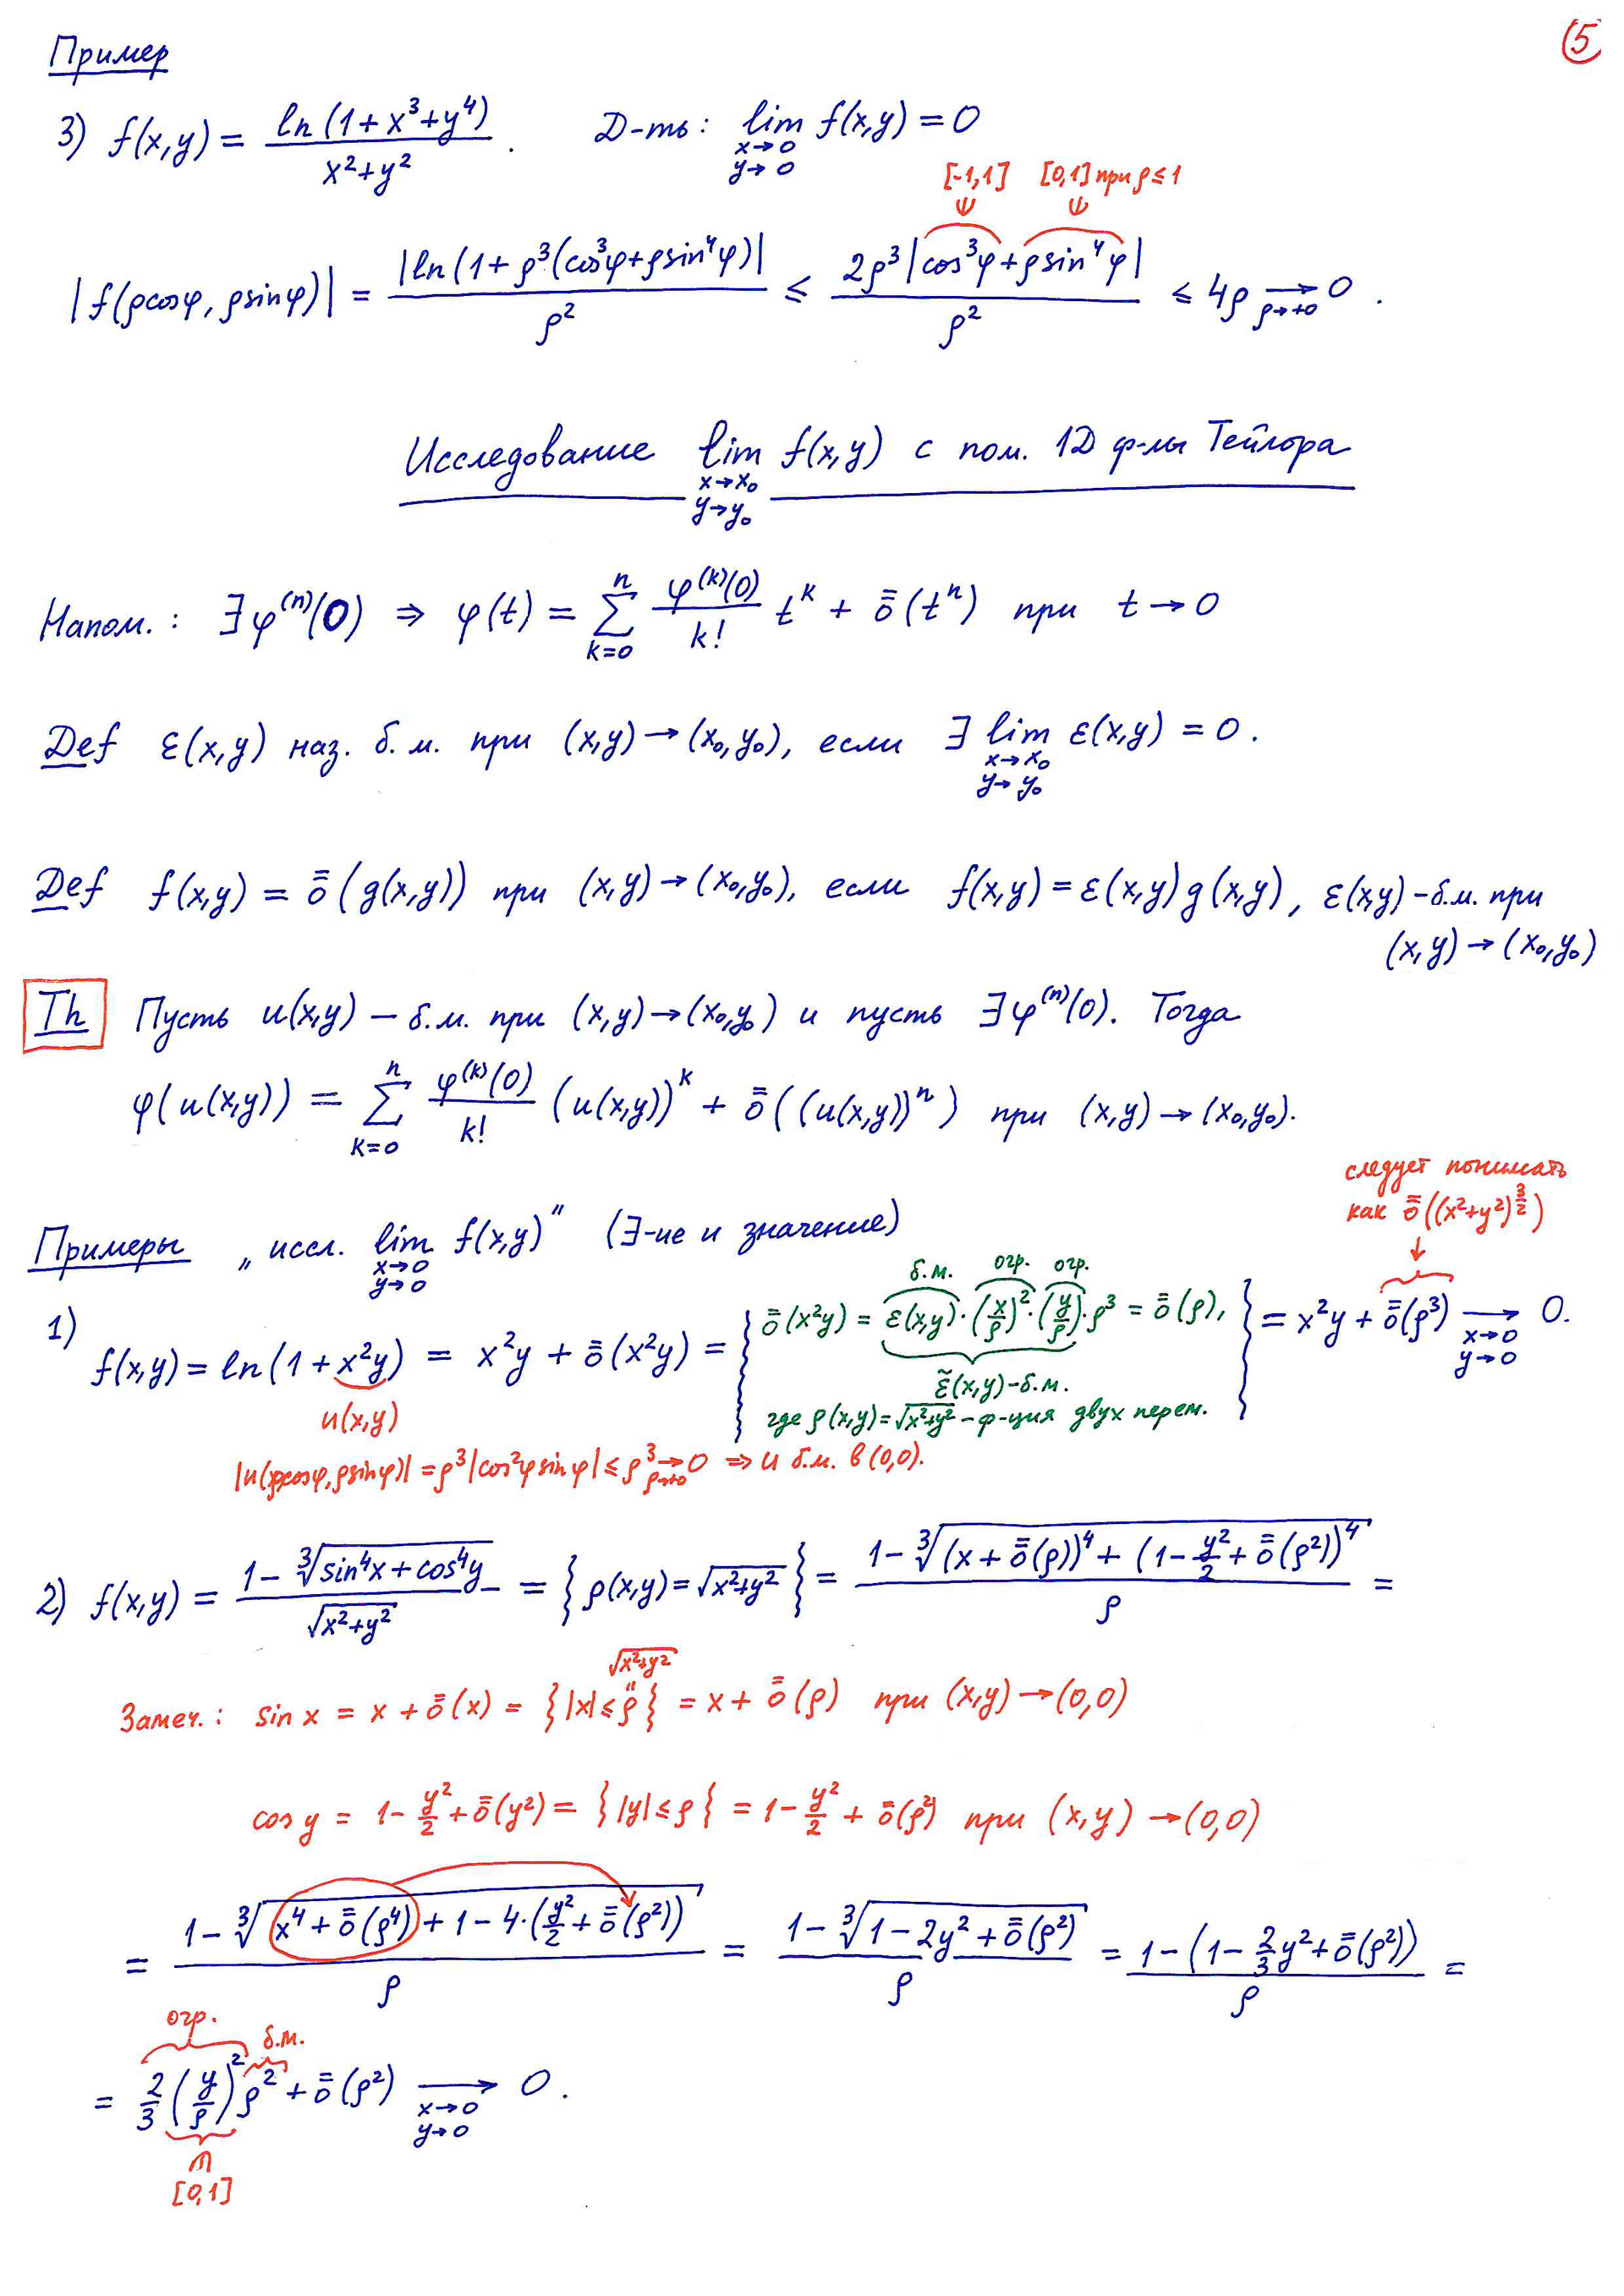 (5)
Пример
3) f(x,y) = ln(1+x³+y⁴) / (x²+y²) . Д-ть: lim_{x→0, y→0} f(x,y) = 0
[-1,1] [0,1] при ρ≤1
|f(ρcosφ, ρsinφ)| = |ln(1+ρ³(cos³φ+ρsin⁴φ)| / ρ² ≤ 2ρ³|cos³φ+ρsin⁴φ| / ρ² ≤ 4ρ →_{ρ→+0} 0 .
Исследование lim_{x→x₀, y→y₀} f(x,y) с пом. 1D ф-лы Тейлора
Напом.: ∃φ⁽ⁿ⁾(0) ⇒ φ(t) = Σ_{k=0}^{n} φ⁽ᵏ⁾(0)/k! tᵏ + ō̄(tⁿ) при t→0
Def ε(x,y) наз. б.м. при (x,y)→(x₀,y₀), если ∃ lim_{x→x₀, y→y₀} ε(x,y) = 0.
Def f(x,y) = ō̄(g(x,y)) при (x,y)→(x₀,y₀), если f(x,y) = ε(x,y)g(x,y), ε(x,y) – б.м. при
(x,y)→(x₀,y₀)
Th Пусть u(x,y) – б.м. при (x,y)→(x₀,y₀) и пусть ∃φ⁽ⁿ⁾(0). Тогда
φ(u(x,y)) = Σ_{k=0}^{n} φ⁽ᵏ⁾(0)/k! (u(x,y))ᵏ + ō̄((u(x,y))ⁿ) при (x,y)→(x₀,y₀).
следует понимать
как ō̄((x²+y²)^{3/2})
Примеры „иссл. lim_{x→0, y→0} f(x,y)” (∃-ие и значение)
б.м. огр. огр.
1) f(x,y) = ln(1+x²y) = x²y + ō̄(x²y) = { ō̄(x²y) = ε(x,y)·(x/ρ)²·(y/ρ)·ρ³ = ō̄(ρ), } = x²y + ō̄(ρ³) →_{x→0, y→0} 0.
u(x,y)
ε̃(x,y) – б.м.
где ρ(x,y) = √(x²+y²) – ф-ция двух перем.
|u(ρcosφ, ρsinφ)| = ρ³|cos²φ sinφ| ≤ ρ³ →_{ρ→+0} 0 ⇒ u б.м. в (0,0).
2) f(x,y) = (1 - ∛(sin⁴x + cos⁴y)) / √(x²+y²) = { ρ(x,y) = √(x²+y²) } = (1 - ∛((x+ō̄(ρ))⁴ + (1 - y²/2 + ō̄(ρ²))⁴)) / ρ =
√(x²+y²)
Замеч.: sin x = x + ō̄(x) = { |x| ≤ ρ } = x + ō̄(ρ) при (x,y)→(0,0)
cos y = 1 - y²/2 + ō̄(y²) = { |y| ≤ ρ } = 1 - y²/2 + ō̄(ρ²) при (x,y)→(0,0)
= (1 - ∛(x⁴ + ō̄(ρ⁴) + 1 - 4·(y²/2 + ō̄(ρ²))) / ρ = (1 - ∛(1 - 2y² + ō̄(ρ²))) / ρ = (1 - (1 - 2/3 y² + ō̄(ρ²))) / ρ =
огр. б.м.
= 2/3 (y/ρ)² ρ² + ō̄(ρ²) →_{x→0, y→0} 0.
[0,1]